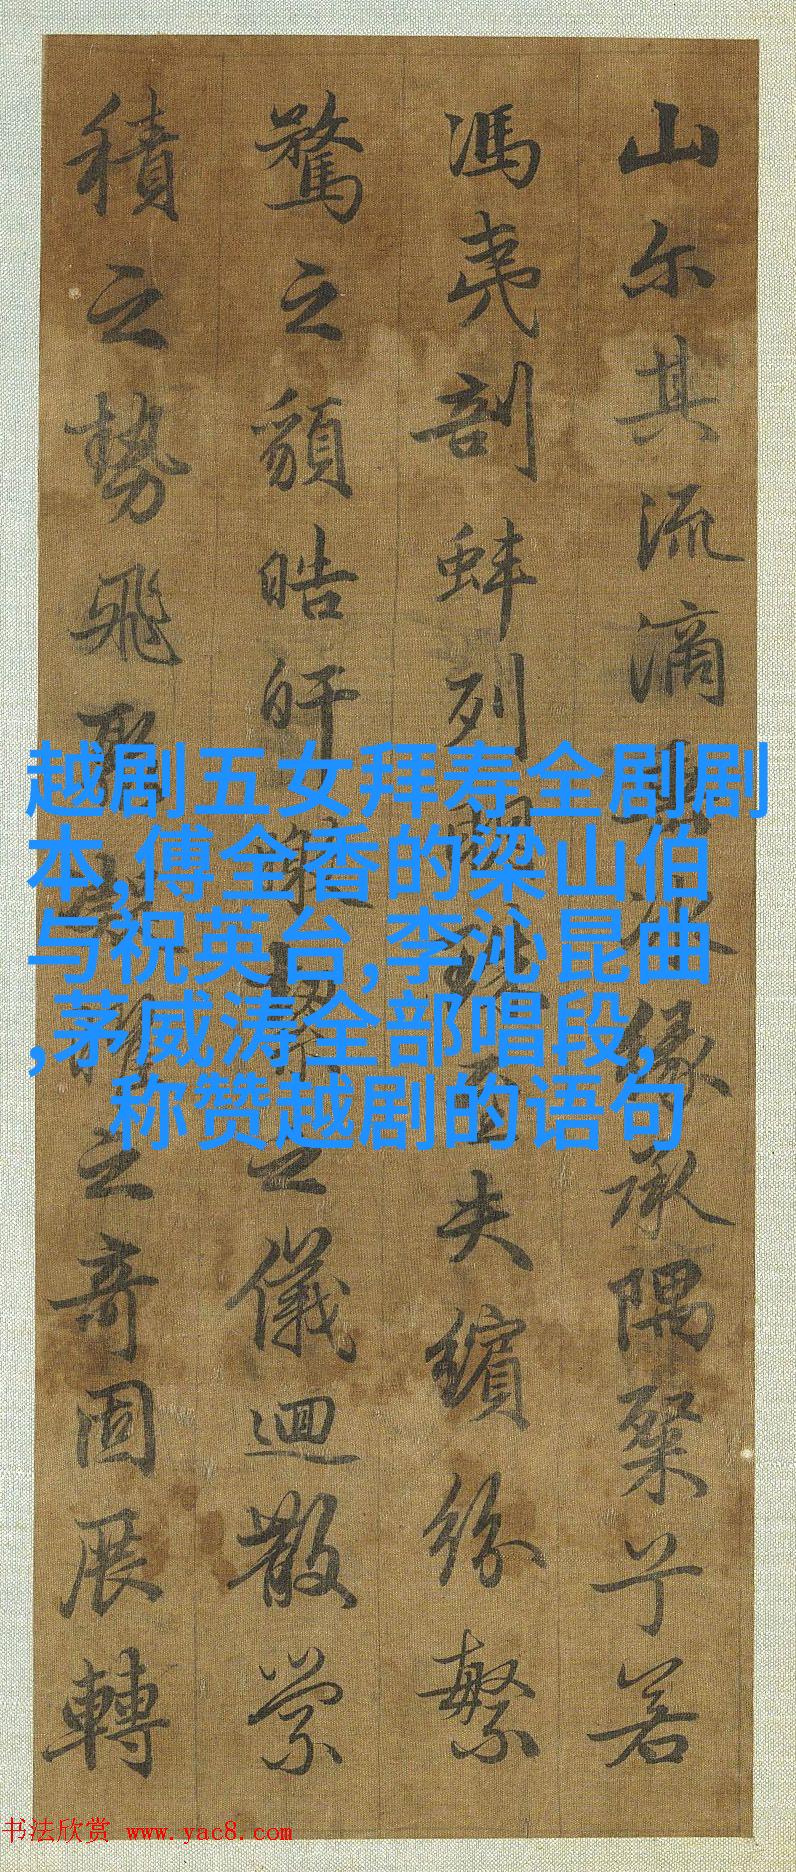 山尔其流滴緣承隅粲兮若
馮夷剖蚌列珠至夫繽紛繁
驚之貌皓旰潔之儀迴散縈
積之勢飛聚之奇固展轉
越剧五女拜寿全剧剧
本,傅全香的梁山伯
与祝英台,李沁昆曲
,茅威涛全部唱段,
称赞越剧的语句
书法欣赏 www.yac8.com